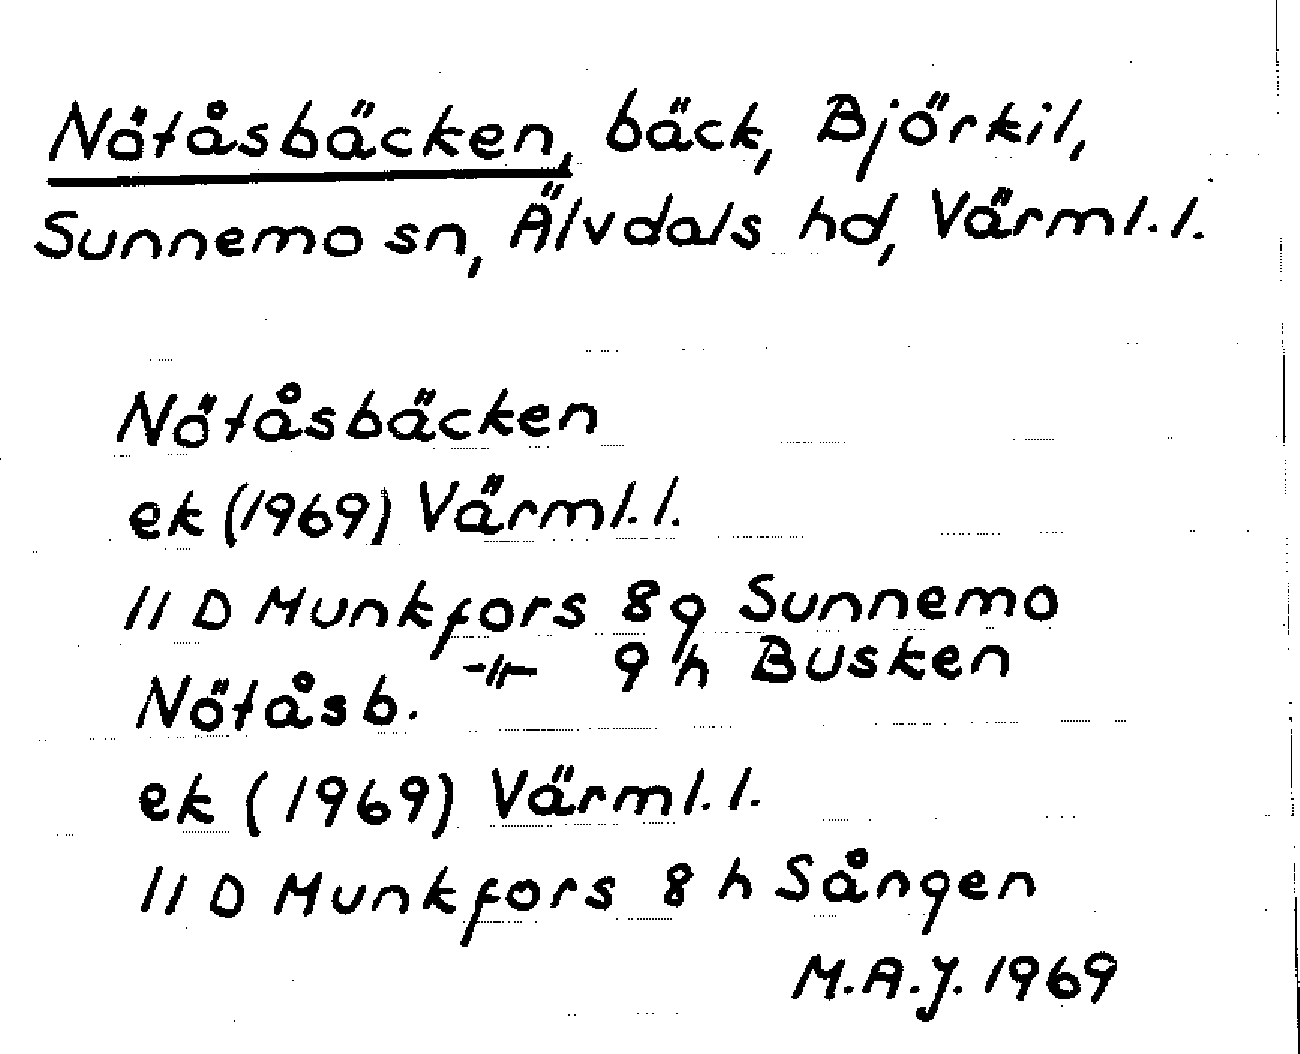 Nötåsbäcken, bäck, Björkil,
Sunnemo sn, Älvdals hd, Värml. l.
Nötåsbäcken
ek (1969) Värml. l.
11 D Munkfors 8g Sunnemo
-11- 9 h Busken
Nötåsb.
ek (1969) Värml. l.
11 D Munkfors 8 h Sången
M.A.J. 1969